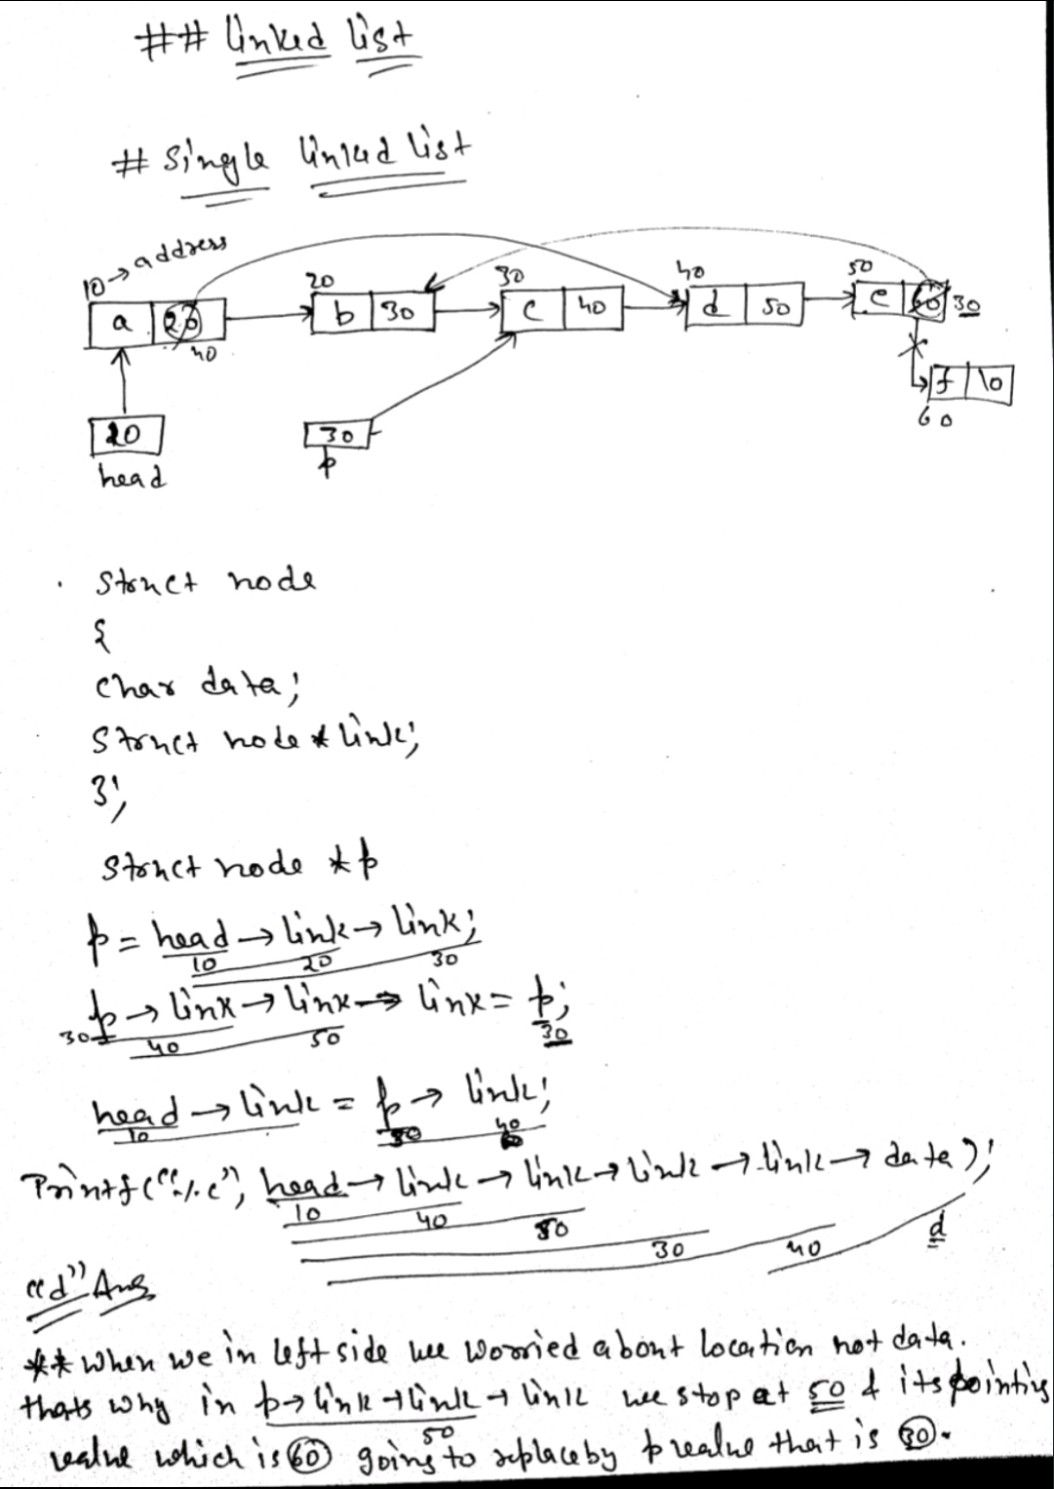 ## linked list
# Single linked list
10→ address
20
30
40
50
a 20
b 30
c 40
d 50
e 60
30
40
f \0
60
20
head
30
p
Struct node
{
Char data;
Struct node * link;
};
Struct node * p
p = head → link → link;
10 20 30
p → link → link → link = p;
30 40 50 30
head → link = p → link;
10 30 40
Printf("%c", head → link → link → link → link → data);
10 40 50 30 40 d
"d" Ans
** When we in left side we worried about location not data.
thats why in p → link → link → link we stop at 50 & its pointing
50
value which is 60 going to replace by p value that is 30.